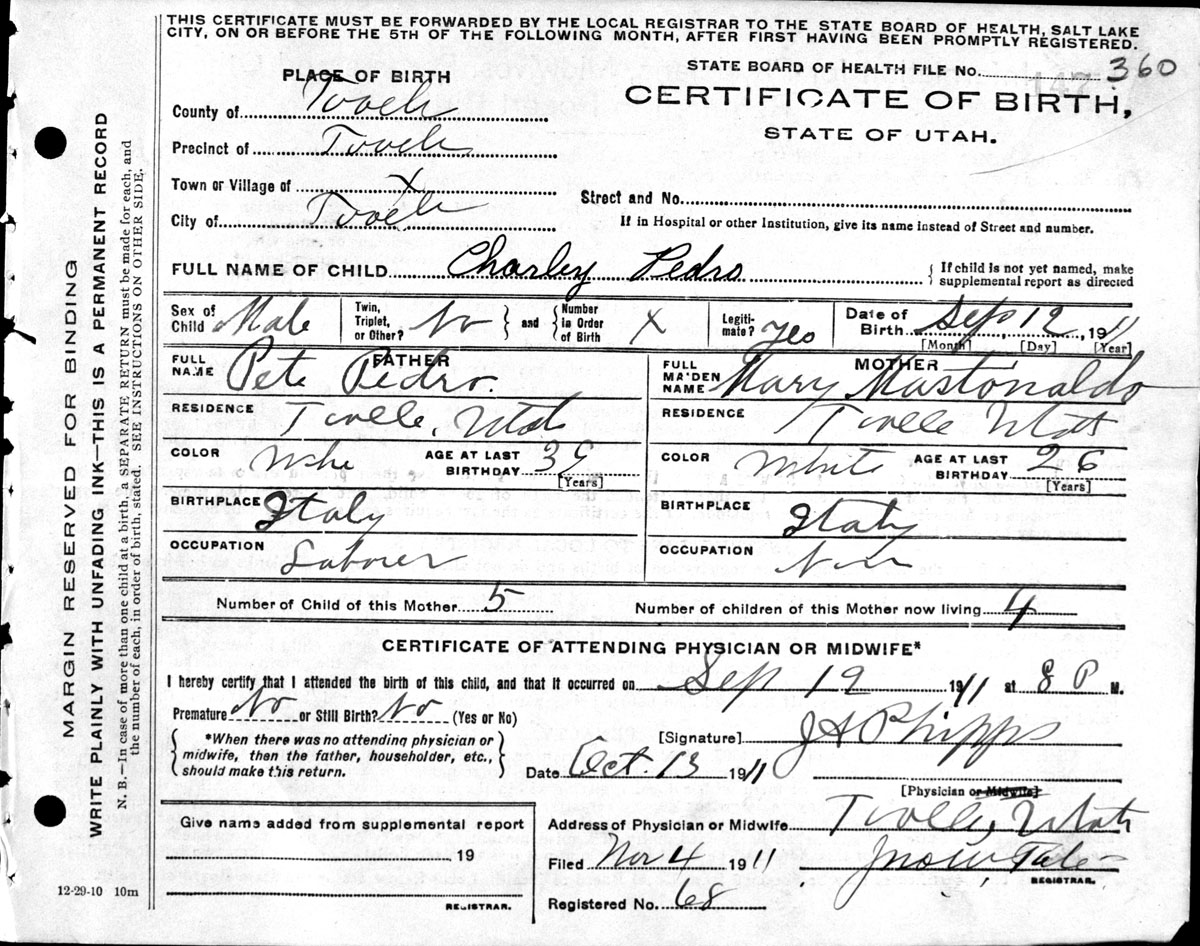 THIS CERTIFICATE MUST BE FORWARDED BY THE LOCAL REGISTRAR TO THE STATE BOARD OF HEALTH, SALT LAKE
CITY, ON OR BEFORE THE 5TH OF THE FOLLOWING MONTH, AFTER FIRST HAVING BEEN PROMPTLY REGISTERED.
STATE BOARD OF HEALTH FILE NO. 360
CERTIFICATE OF BIRTH,
STATE OF UTAH.
PLACE OF BIRTH
County of Tooele
Precinct of Tooele
Town or Village of X
City of Tooele
Street and No.
If in Hospital or other Institution, give its name instead of Street and number.
FULL NAME OF CHILD Charley Pedro { If child is not yet named, make
supplemental report as directed
Sex of Child Male
Twin, Triplet, or Other? No } and { Number in Order of Birth X
Legitimate? Yes
Date of Birth Sep 12, 1911
[Month] [Day] [Year]
FATHER
FULL NAME Pete Pedro.
RESIDENCE Tooele, Utah
COLOR AGE AT LAST BIRTHDAY
[Years]
BIRTHPLACE Italy
OCCUPATION Laborer
MOTHER
FULL MAIDEN NAME Mary Mastonaldo
RESIDENCE Tooele Utah
COLOR White AGE AT LAST BIRTHDAY 26
[Years]
BIRTHPLACE Italy
OCCUPATION
Number of Child of this Mother 5 Number of children of this Mother now living 4
CERTIFICATE OF ATTENDING PHYSICIAN OR MIDWIFE*
I hereby certify that I attended the birth of this child, and that it occurred on Sep 12 1911 at 8 P M.
Premature No or Still Birth? No (Yes or No)
{ *When there was no attending physician or
midwife, then the father, householder, etc.,
should make this return. }
[Signature] J A Phipps
Date Oct. 13 1911
[Physician or Midwife]
Give name added from supplemental report
19
REGISTRAR.
Address of Physician or Midwife Tooele, Utah
Filed Nov 4 1911
REGISTRAR.
Registered No. 68
12-29-10 10m
MARGIN RESERVED FOR BINDING
WRITE PLAINLY WITH UNFADING INK—THIS IS A PERMANENT RECORD
N. B.—In case of more than one child at a birth, a SEPARATE RETURN must be made for each, and
the number of each, in order of birth, stated. SEE INSTRUCTIONS ON OTHER SIDE.